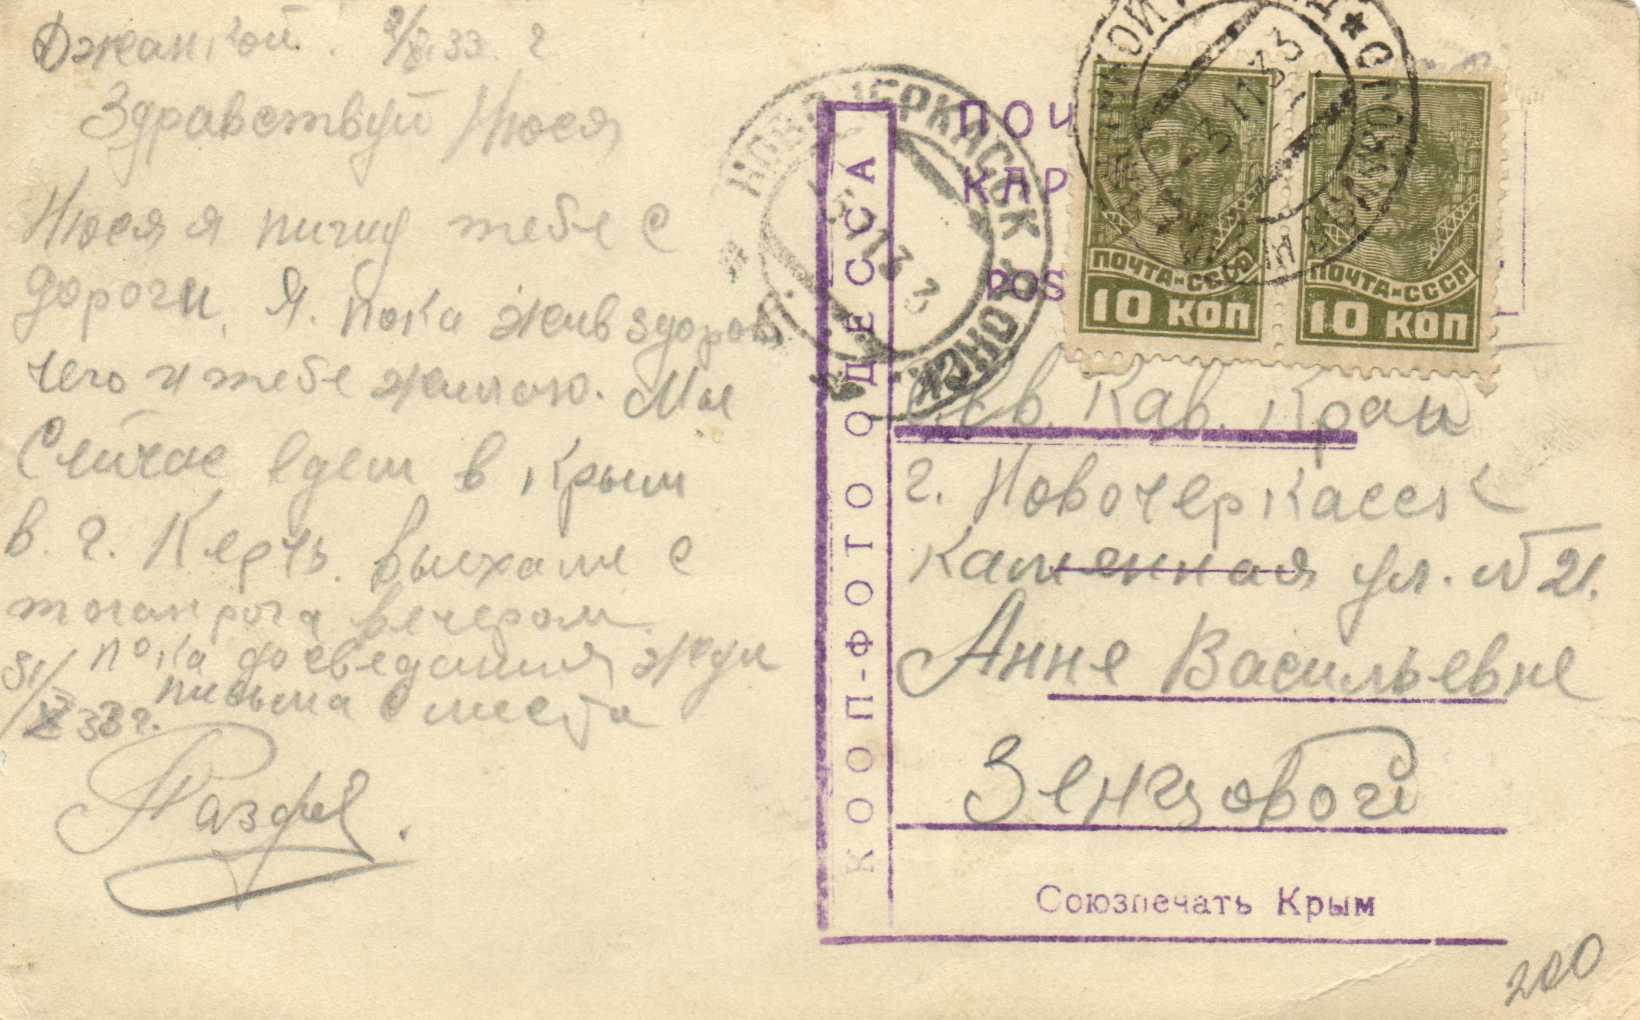 Джанкой 2/XI 33 г
Здравствуй Нюся
Нюся я пишу тебе с
дороги. Я. пока жив здоров
чего и тебе желаю. Мы
Сейчас едем в Крым
в г. Керчь. выехали с
таганрога вечером
31/X 33 г. пока досведания жди
письма с места
НОВОЧЕРКАССК ДОНСК.
5 11 33
КООП-ФОТО ОДЕССА
ПОЧ
КАР
POS
3 11 33
ПОЧТА-СССР
10 КОП
ПОЧТА-СССР
10 КОП
Сев. Кав. Край
г. Новочеркасск
Каменная ул. № 21.
Анне Васильевне
Зенцовой
Союзпечать Крым
200